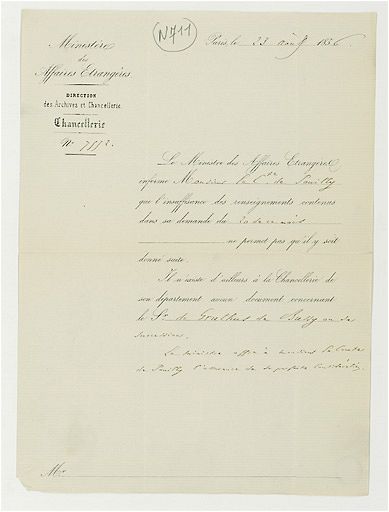 (N711)
Paris, le 23 août 1856
Ministère
des
Affaires Etrangères
DIRECTION
des Archives et Chancellerie.
Chancellerie
N°
Le Ministre des Affaires Etrangères
informe Monsieur le Cte de
que l'insuffisance des renseignements contenus
dans sa demande du 20 de ce mois
ne permet pas qu'il y soit
donné suite.
Il n'existe d'ailleurs à la Chancellerie de
son département aucun document concernant
le Sr de de ou sa
succession.
Le ministre offre à monsieur le Comte
de l'assurance de sa parfaite considération.
Mr